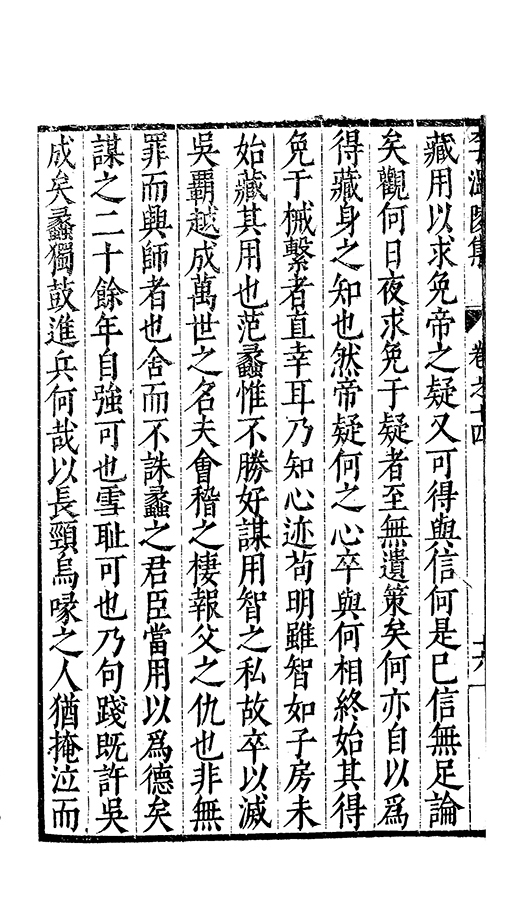 李溫陵集 卷之十四 十六
藏用以求免帝之疑又可得與信何是已信無足論
矣觀何日夜求免于疑者至無遺策矣何亦自以為
得藏身之知也然帝疑何之心卒與何相終始其得
免于械繫者直幸耳乃知心迹苟明雖智如子房未
始藏其用也范蠡惟不勝好謀用智之私故卒以滅
吳覇越成萬世之名夫會稽之棲報父之仇也非無
罪而興師者也舍而不誅蠡之君臣當用以為德矣
謀之二十餘年自強可也雪耻可也乃句踐既許吳
成矣蠡獨鼓進兵何哉以長頸烏喙之人猶掩泣而